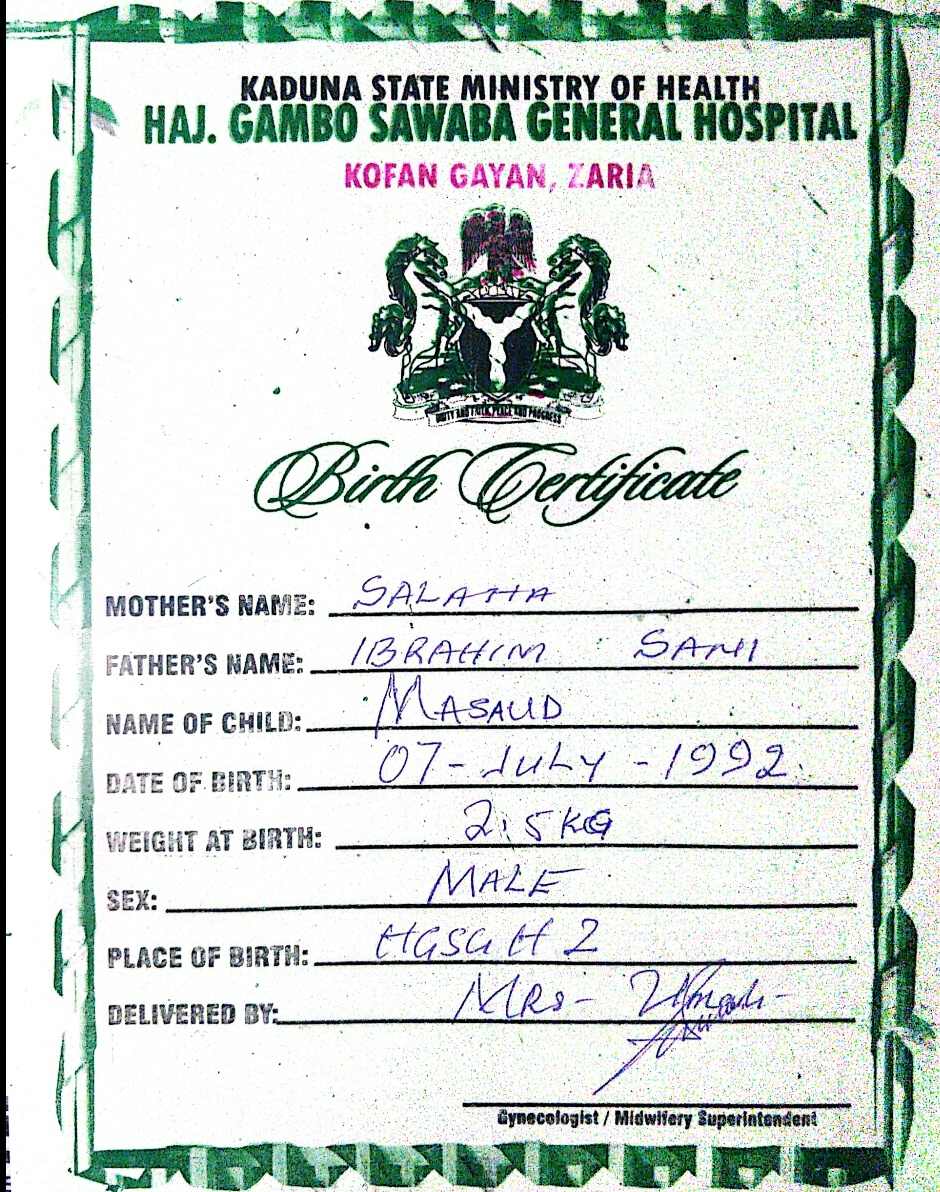 KADUNA STATE MINISTRY OF HEALTH
HAJ. GAMBO SAWABA GENERAL HOSPITAL
KOFAN GAYAN, ZARIA
UNITY AND FAITH, PEACE AND PROGRESS
Birth Certificate
MOTHER'S NAME: SALAMA
FATHER'S NAME: IBRAHIM SANI
NAME OF CHILD: MASAUD
DATE OF BIRTH: 07-JULY-1992.
WEIGHT AT BIRTH: 2.5KG
SEX: MALE
PLACE OF BIRTH: HGSGHZ
DELIVERED BY: MRS-
Gynecologist / Midwifery Superintendent